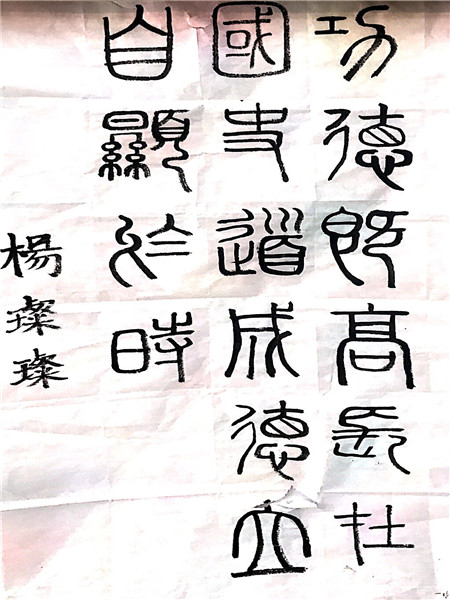 功德既高長在
國史道成德立
自顯於時
楊璨璨